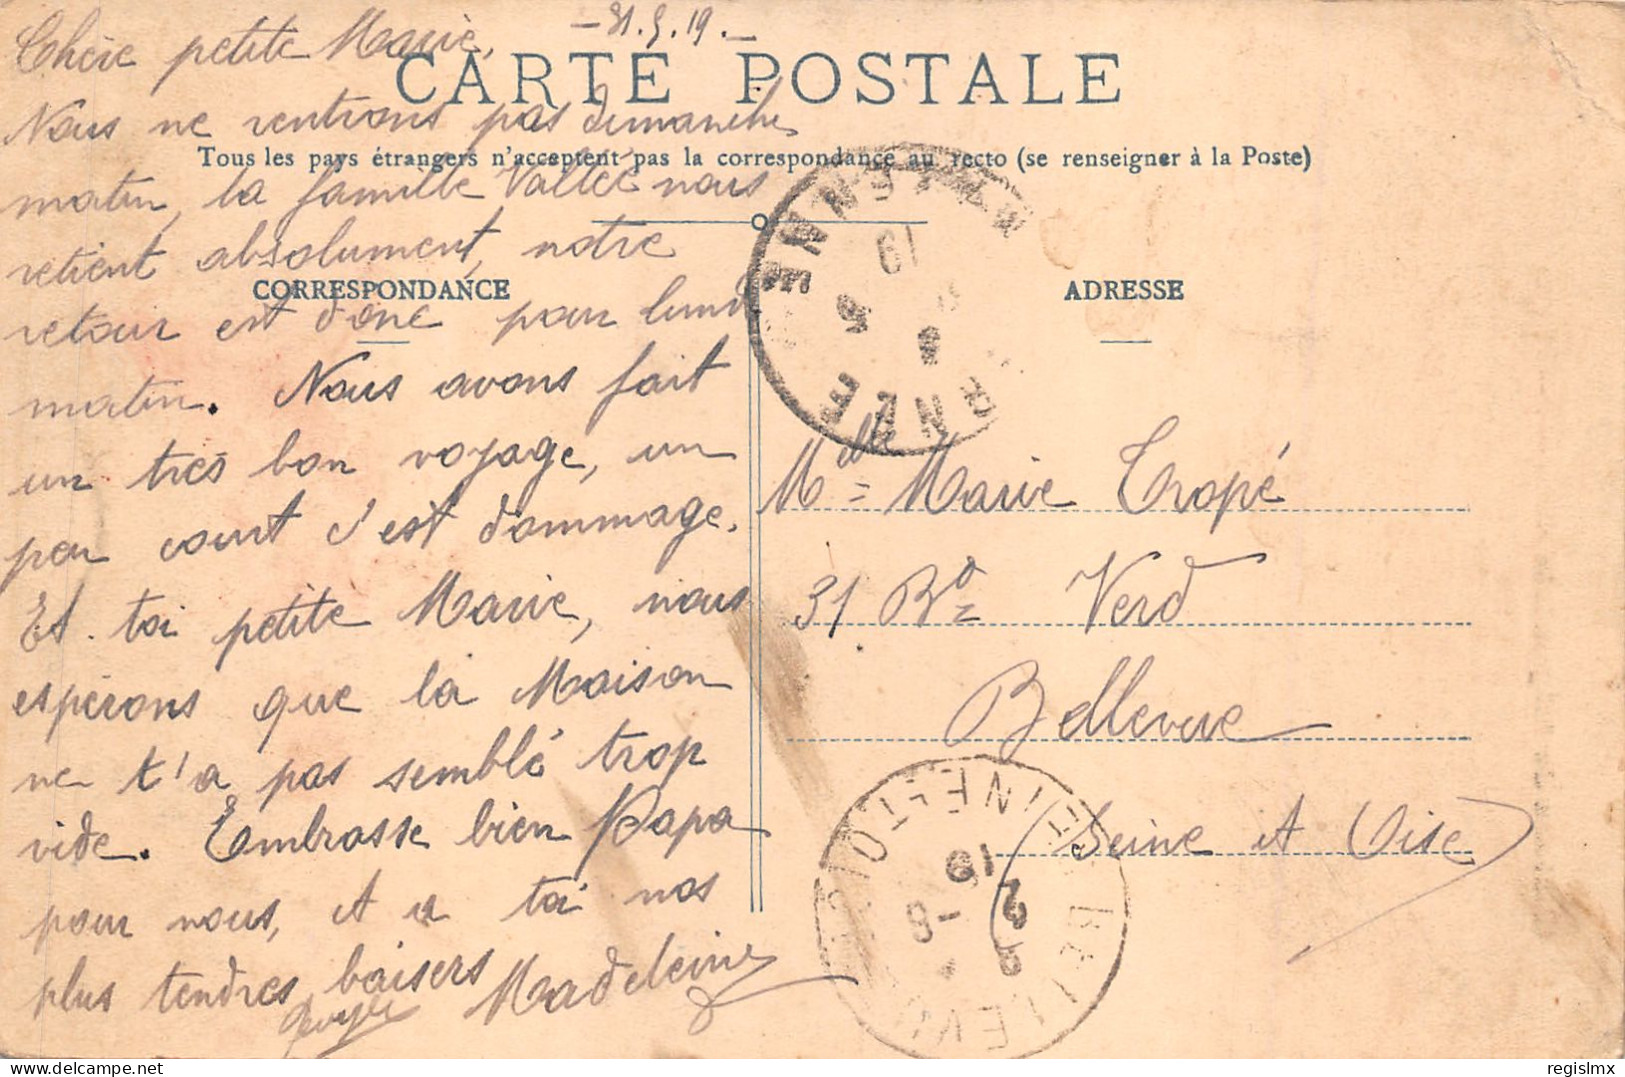 Chère petite Marie,
— 31.5.19. —
CARTE POSTALE
Tous les pays étrangers n'acceptent pas la correspondance au recto (se renseigner à la Poste)
Nous ne rentrons pas dimanche
matin, la famille Vallée nous
retient absolument, notre
retour est donc pour lundi
matin. Nous avons fait
un très bon voyage, un
peu court c'est dommage.
Et toi petite Marie, nous
espérons que la Maison
ne t'a pas semblé trop
vide. Embrasse bien Papa
pour nous, et a toi nos
plus tendres baisers
Madeleine
CORRESPONDANCE
ADRESSE
Mlle Marie Tropé
31 Bd Verd
Bellevue
(Seine et Oise)
RENNES
19
BELLEVUE
SEINE-ET-OISE
19
regislmx